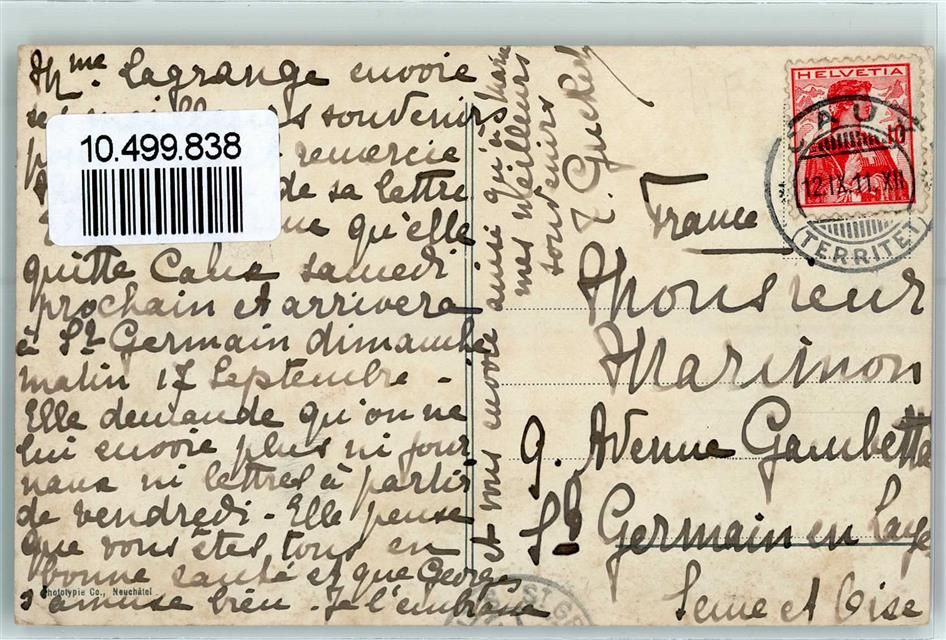 Mme Lagrange envoie
souvenirs
remercie
de sa lettre
qu'elle
quitte Caux samedi
prochain et arrivera
à St Germain dimanche
matin 17 Septembre -
Elle demande qu'on ne
lui envoie plus ni jour
naux ni lettres à partir
de vendredi - Elle pense
que vous êtes tous en
bonne santé et que Georges
s'amuse bien - Je l'embrasse
et vous envoie ainsi qu'à
mes meilleurs
souvenirs
10.499.838
HELVETIA
10
CAUX
12.IX.11.XII
TERRITET
France
Monsieur
Marimon
9. Avenue Gambetta
St Germain en Laye
Seine et Oise
Phototypie Co., Neuchâtel
ST GE